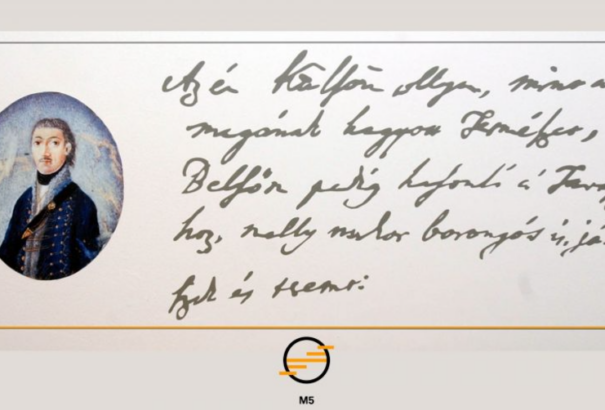 Az én Külsőm ollyan, mint a
magának hagyott Természet,
Belsőm pedig hasonló a Tava
hoz, melly mikor borongós is, já
szik és teremt:
M5